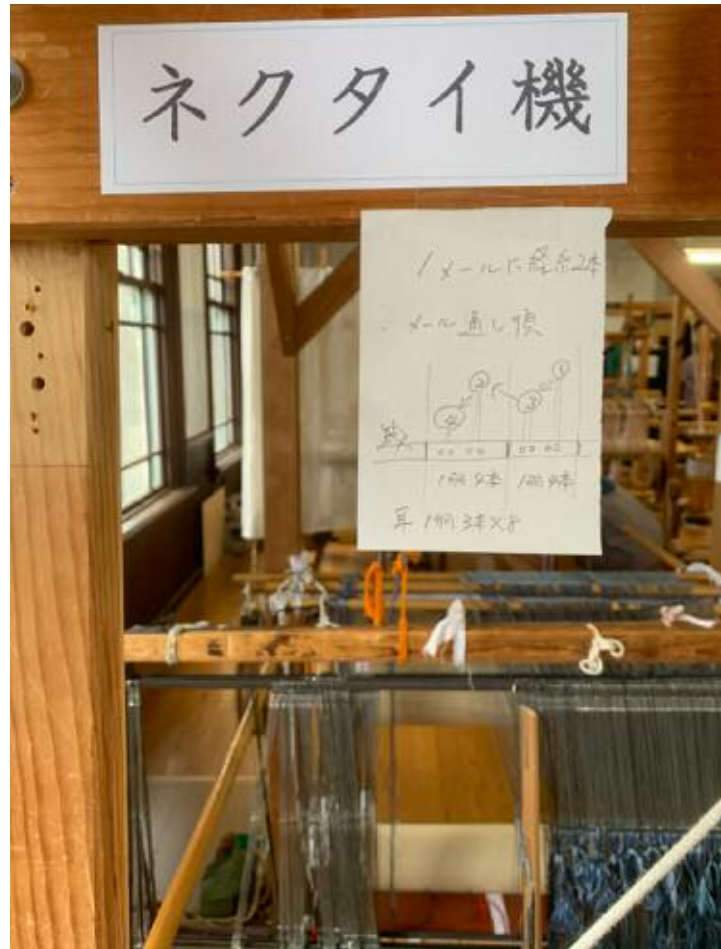 ネクタイ機
1メールに経糸2本
メール通し順
② ①
④ ③
筬入
1羽4本 1羽4本
耳 1羽 3本×8